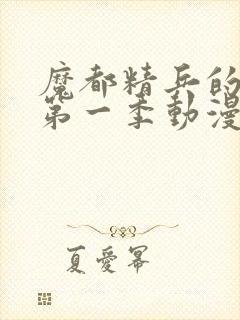 魔都精兵的
第一季動漫
夏愛冪